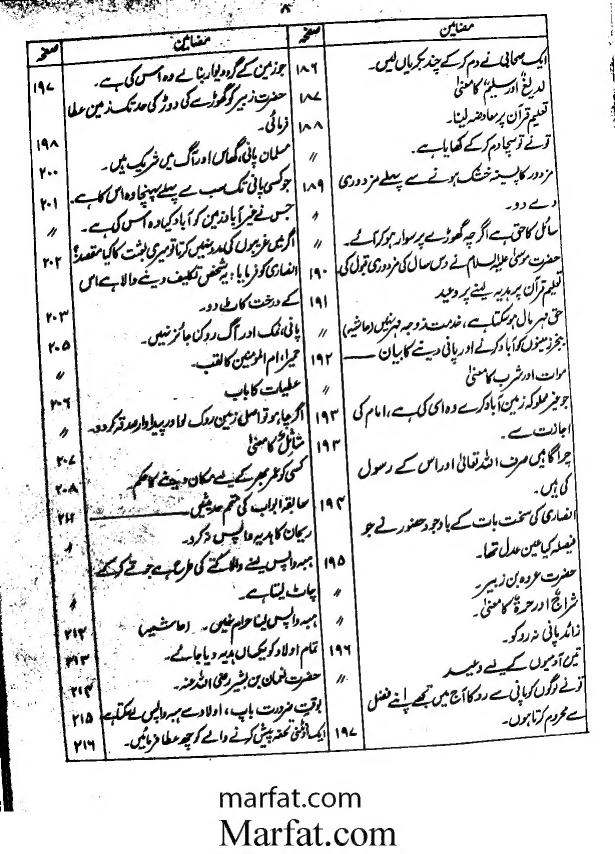 ۸
مضامین
صفحہ
ایک صحابی نے دم کر کے چند بکریاں لیں۔
۱۸۶
لدیغ اور سلیم کا معنیٰ
۱۸۷
تعلیم قرآن پر معاوضہ لینا۔
۱۸۸
تو نے تو سچا دم کر کے کھایا ہے۔
〃
مزدور کا پسینہ خشک ہونے سے پہلے مزدوری
۱۸۹
دے دو۔
سائل کا حق ہے اگرچہ گھوڑے پر سوار ہو کر آئے۔
〃
حضرت موسیٰ علیہ السلام نے دس سال کی مزدوری قبول کی
۱۹۰
تعلیم قرآن پر ہدیہ لینے پر وعید
۱۹۱
حق مہر مال ہو سکتا ہے، خدمت زوجہ مہر نہیں (حاشیہ)
〃
بنجر زمینوں کو آباد کرنے اور پانی دینے کا بیان
۱۹۲
موات اور شرب کا معنیٰ
〃
جو غیر مملوکہ زمین آباد کرے وہ اسی کی ہے، امام کی
۱۹۳
اجازت سے۔
چراگاہیں صرف اللہ تعالیٰ اور اس کے رسول
۱۹۳
کی ہیں۔
انصاری کی سخت بات کے باوجود حضور نے جو
۱۹۴
فیصلہ کیا عین عدل تھا۔
حضرت عروہ بن زبیر۔
۱۹۵
شراج اور حرۃ کا معنیٰ۔
زائد پانی نہ روکو۔
〃
تین آدمیوں کے لیے وعید
۱۹۶
تو نے لوگوں کو پانی سے روکا آج میں تجھے اپنے فضل
〃
سے محروم کرتا ہوں۔
۱۹۷
مضامین
صفحہ
جو زمین کے گرد دیوار بنا لے وہ اس کی ہے۔
۱۹۷
حضرت زبیر کو گھوڑے کی دوڑ کی حد تک زمین عطا
فرمائی۔
۱۹۸
مسلمان پانی، گھاس اور آگ میں شریک ہیں۔
۲۰۰
جو کسی پانی تک سب سے پہلے پہنچا وہ اس کا ہے۔
۲۰۱
جس نے غیر آباد زمین کو آباد کیا وہ اس کی ہے۔
〃
اگر میں غریبوں کی مدد نہیں کرتا تو میری بعثت کا کیا مقصد؟
۲۰۲
انصاری کو فرمایا: یہ شخص تکلیف دینے والا ہے اس
کے درخت کاٹ دو۔
۲۰۳
پانی، نمک اور آگ روکنا جائز نہیں۔
۲۰۵
حمیرا، ام المؤمنین کا لقب۔
〃
عطیات کا باب
۲۰۶
اگر چاہو تو اصل زمین روک لو اور پیداوار صدقہ کر دو۔
〃
متاثل کا معنیٰ
۲۰۷
کسی کو عمر بھر کے لیے مکان دینے کا حکم۔
۲۰۸
سابقہ ابواب کی متمم حدیثیں
۲۱۱
ریحان کا ہدیہ واپس نہ کرو۔
〃
ہبہ واپس لینے والا کتے کی طرح ہے جو قے کر کے
چاٹ لیتا ہے۔
〃
ہبہ واپس لینا حرام نہیں۔ (حاشیہ)
۲۱۲
تمام اولاد کو یکساں ہدیہ دیا جائے۔
۲۱۳
حضرت نعمان بن بشیر رضی اللہ عنہ۔
۲۱۴
بوقت ضرورت باپ، اولاد سے ہبہ واپس لے سکتا ہے
۲۱۵
ایک اونٹنی تحفہ پیش کرنے والے کو چھ عطا فرمائیں۔
۲۱۶
marfat.com
Marfat.com